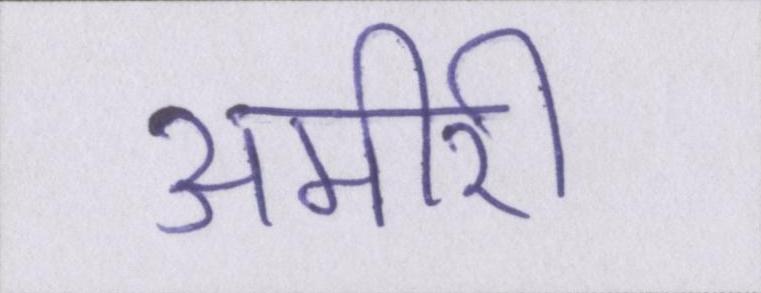 अमीरी